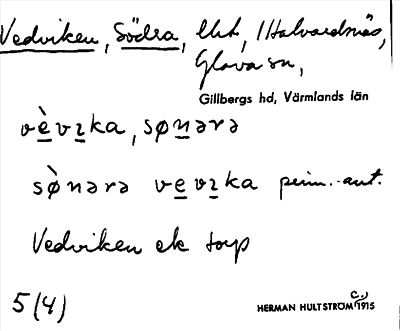 Vedviken, Södra, lht, i Halvardsnäs,
Glava sn,
Gillbergs hd, Värmlands län
vè̱vı̱ka, søṉərə
sø̀nərə ve̱vı̱ka prim.-ant.
Vedviken ek torp
5(4)
HERMAN HULTSTRÖM c.) 1915